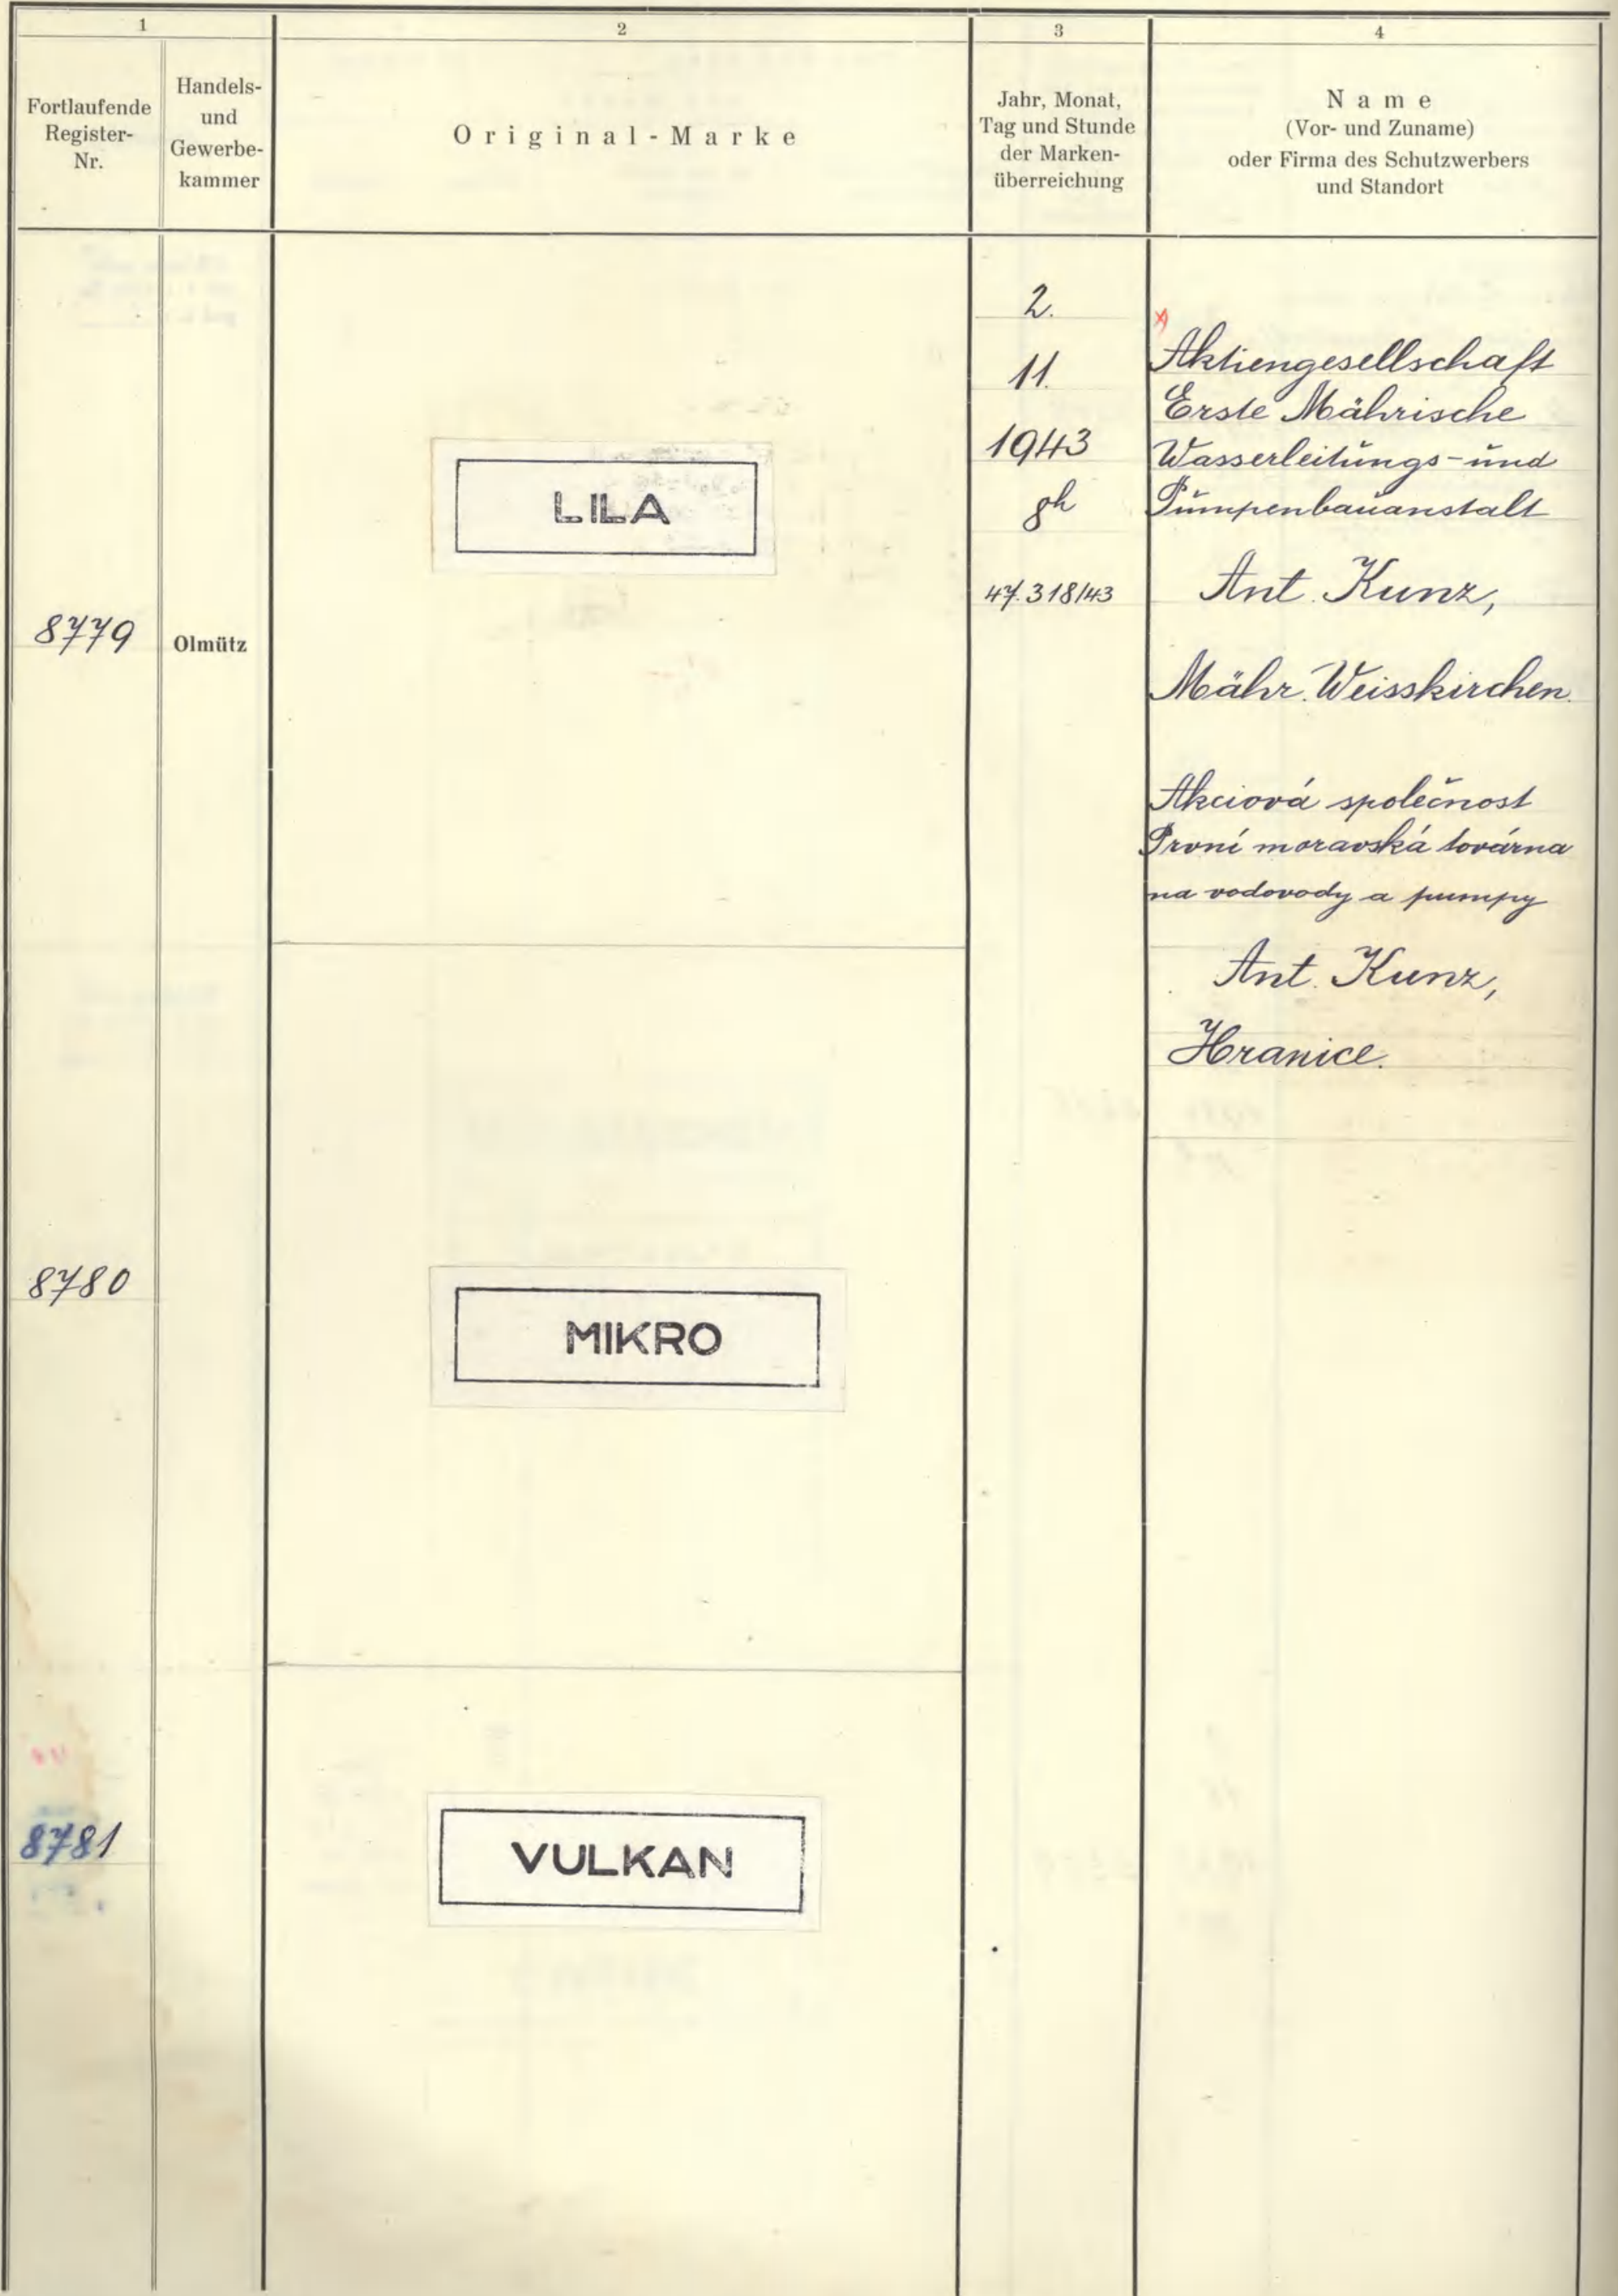 1
2
3
4
Fortlaufende
Register-
Nr.
Handels-
und
Gewerbe-
kammer
Original-Marke
Jahr, Monat,
Tag und Stunde
der Marken-
überreichung
Name
(Vor- und Zuname)
oder Firma des Schutzwerbers
und Standort
8779
Olmütz
LILA
2.
11.
1943
8h
47.318/43
Aktiengesellschaft
Erste Mährische
Wasserleitungs-und
Pumpenbauanstalt
Ant. Kunz,
Mähr. Weisskirchen.
Akciová společnost
První moravská továrna
na vodovody a pumpy
Ant. Kunz,
Hranice.
8780
MIKRO
8781
VULKAN